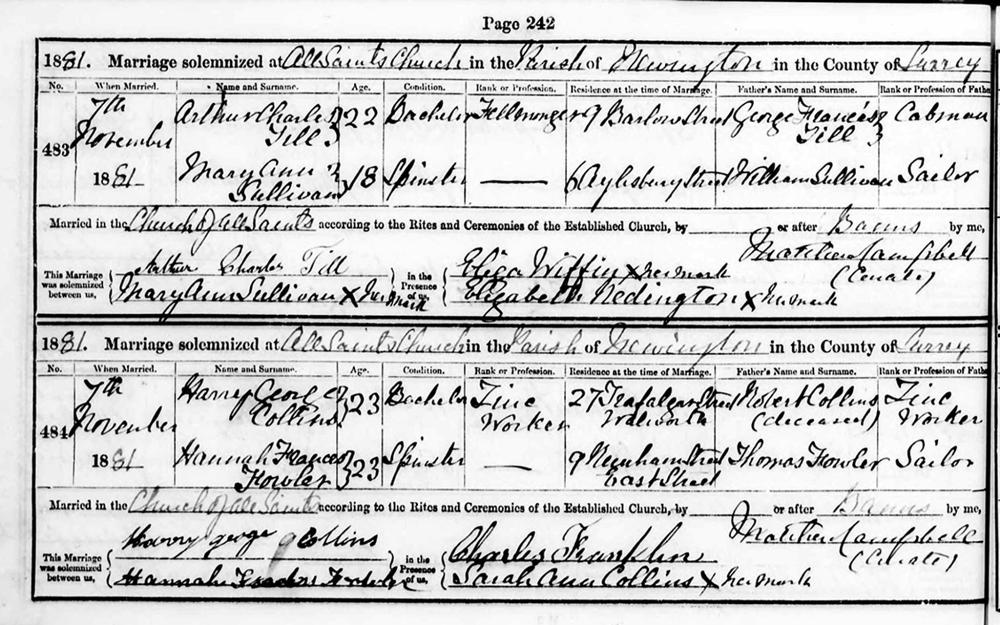 Page 242
1881. Marriage solemnized at All Saints Church in the Parish of Newington in the County of Surrey
No. When Married. Name and Surname. Age. Condition. Rank or Profession. Residence at the time of Marriage. Father's Name and Surname. Rank or Profession of Fathe
483 7th November 1881 Arthur Charles Till 22 Bachelor Fellmonger 9 Barlow Street George Francis Till Cabman
Mary Ann Sullivan 18 Spinster — 6 Aylesbury Street William Sullivan Sailor
Married in the Church of All Saints according to the Rites and Ceremonies of the Established Church, by or after Banns by me,
Matthew Campbell
(Curate)
This Marriage was solemnized between us, Arthur Charles Till in the Presence of us, Eliza Wiffin X her mark
Mary Ann Sullivan X her mark Elizabeth Nedington X her mark
1881. Marriage solemnized at All Saints Church in the Parish of Newington in the County of Surrey
No. When Married. Name and Surname. Age. Condition. Rank or Profession. Residence at the time of Marriage. Father's Name and Surname. Rank or Profession of Fathe
484 7th November 1881 Harry George Collins 23 Bachelor Zinc Worker 27 Trafalgar Street Walworth Robert Collins (deceased) Zinc Worker
Hannah Frances Fowler 23 Spinster — 9 Street East Street Thomas Fowler Sailor
Married in the Church of All Saints according to the Rites and Ceremonies of the Established Church, by or after Banns by me,
Matthew Campbell
(Curate)
This Marriage was solemnized between us, Harry George Collins in the Presence of us, Charles Franklin
Hannah Frances Fowler Sarah Ann Collins X her mark